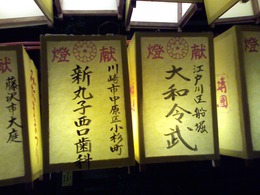 献燈
江戸川区船堀
大和令武
献燈
川崎市中原区小杉町
新丸子西口歯科
藤沢市大庭